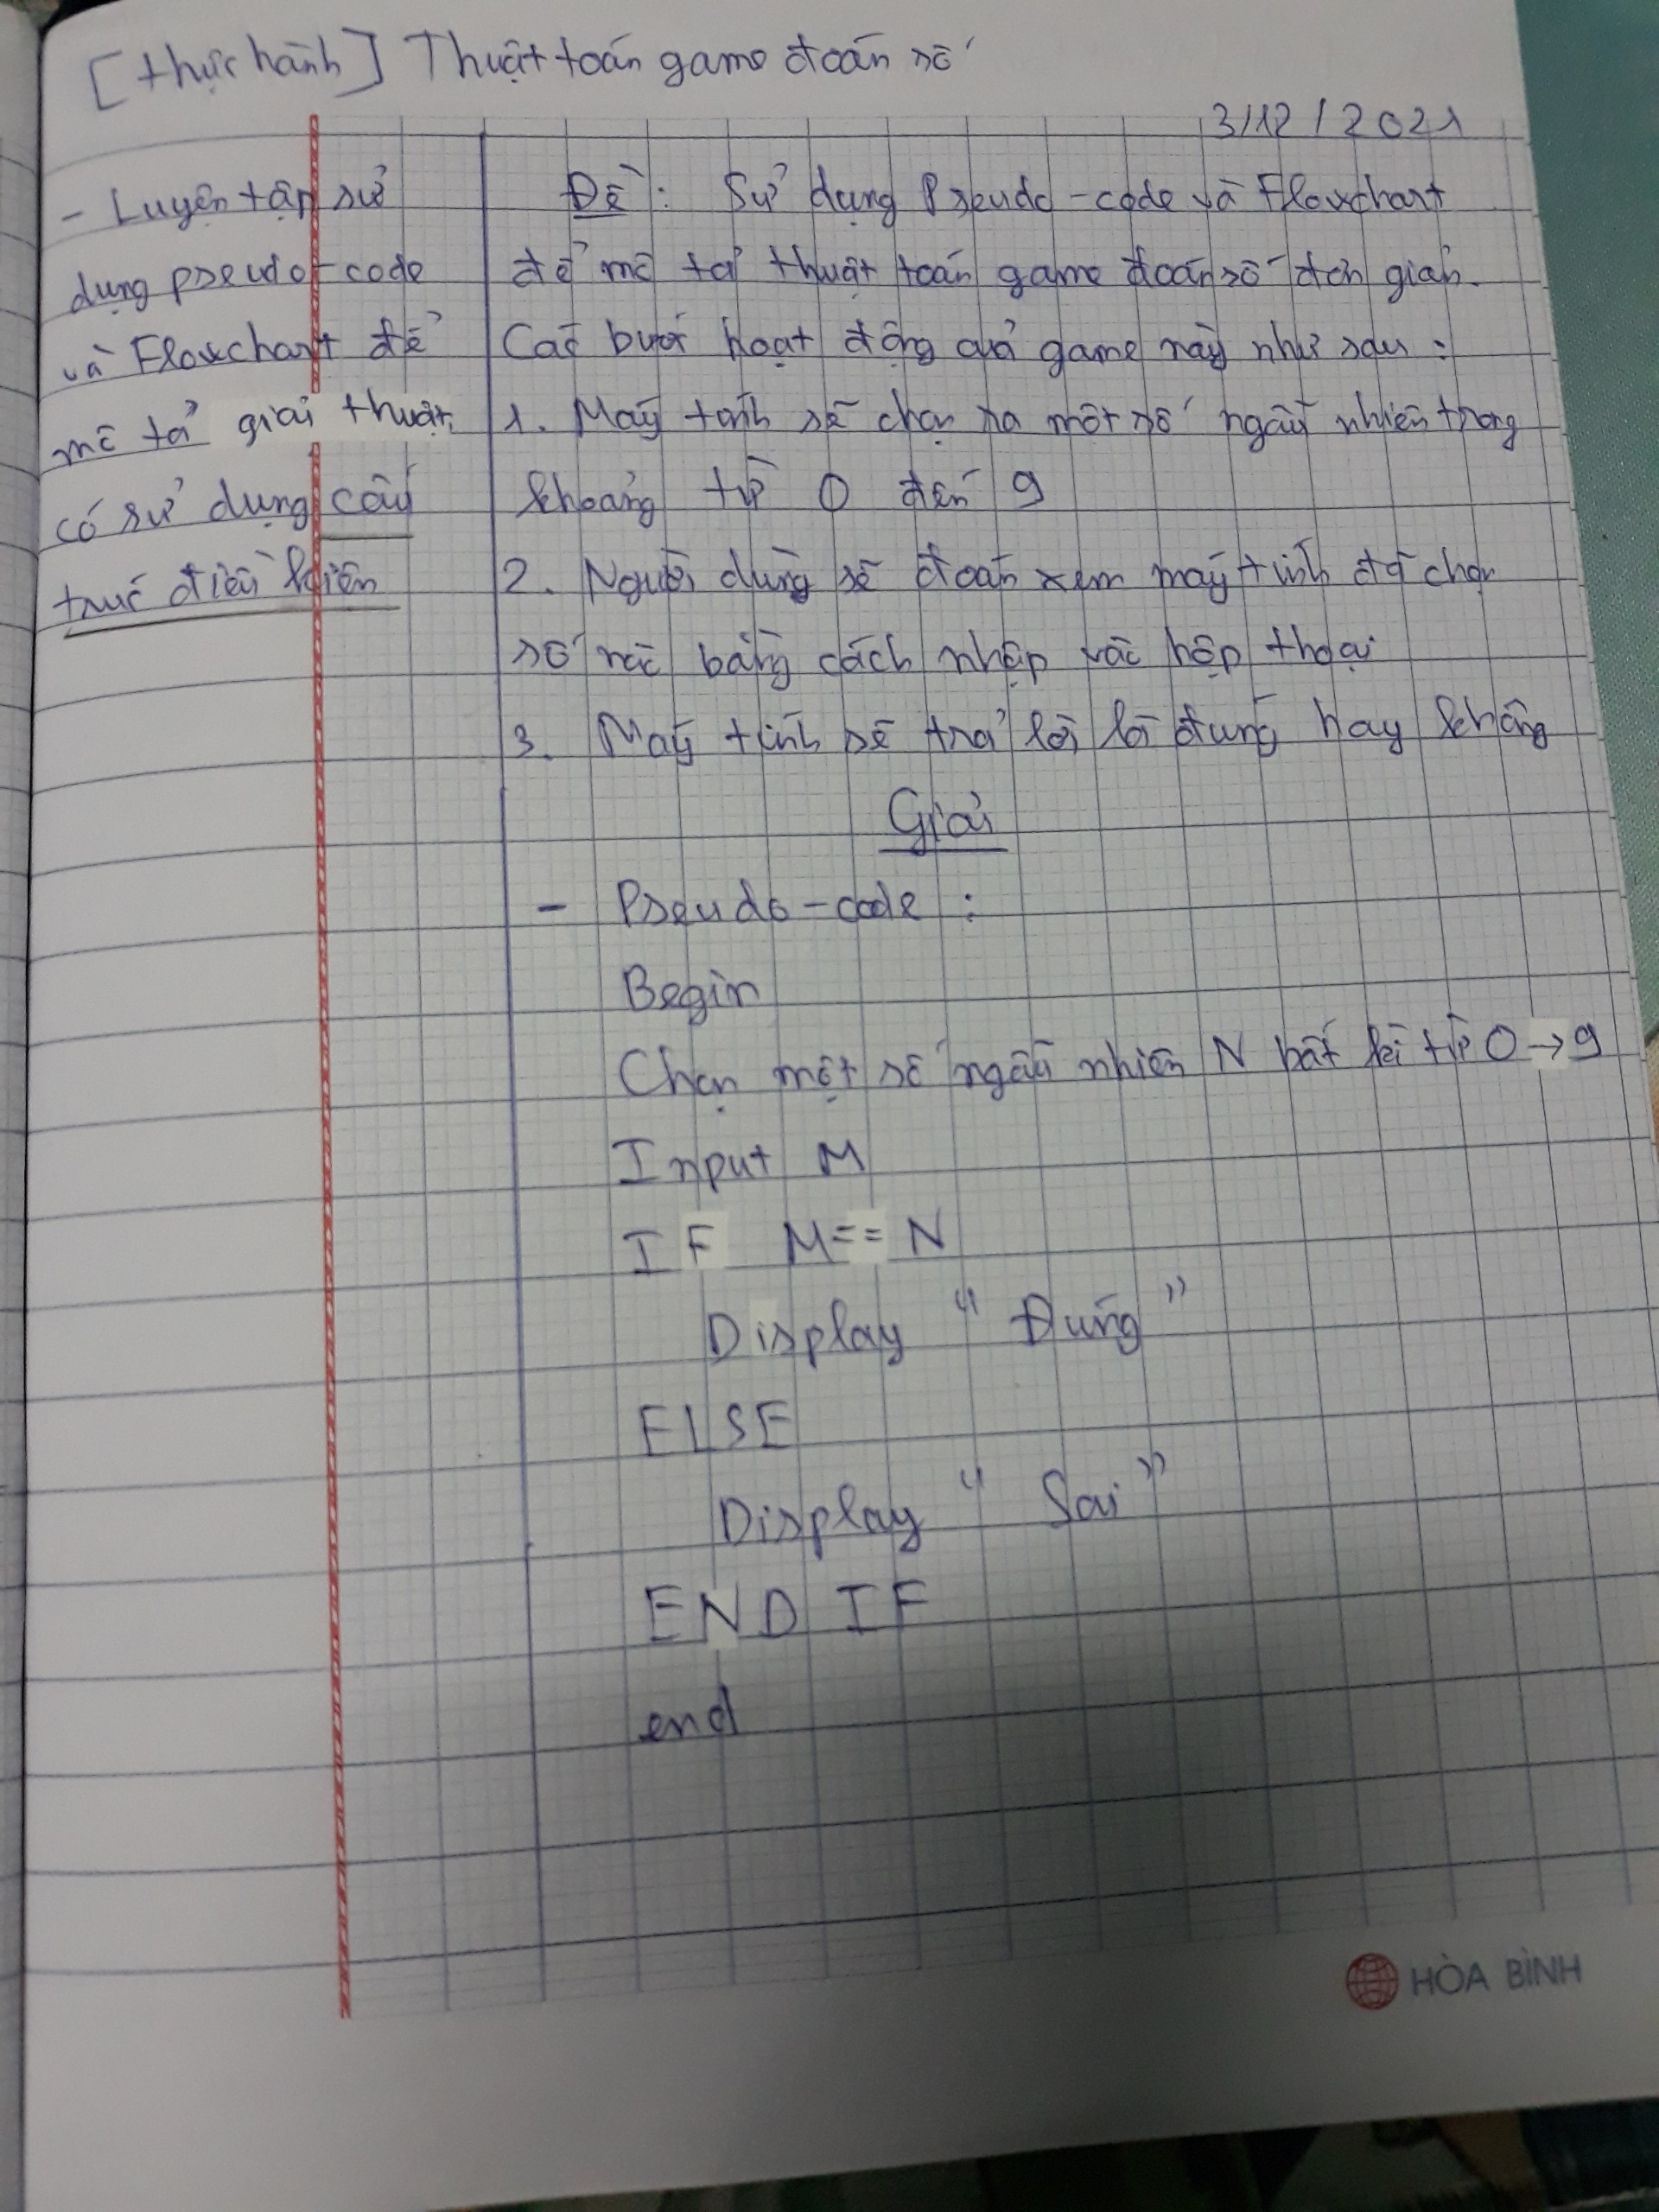 [thực hành] Thuật toán game đoán số
3/12/2021
- Luyện tập sử
dụng pseudo-code
và Flowchart để
mô tả giải thuật
có sử dụng cấu
trúc điều kiện
Đề: Sử dụng Pseudo-code và Flowchart
để mô tả thuật toán game đoán số đơn giản.
Các bước hoạt động của game này như sau:
1. Máy tính sẽ chọn ra một số ngẫu nhiên trong
khoảng từ 0 đến 9
2. Người dùng sẽ đoán xem máy tính đã chọn
số nào bằng cách nhập vào hộp thoại
3. Máy tính sẽ trả lời là đúng hay không
Giải
- Pseudo-code:
Begin
Chọn một số ngẫu nhiên N bất kì từ 0 → 9
Input M
IF M == N
Display "Đúng"
ELSE
Display "Sai"
END IF
end
HÒA BÌNH